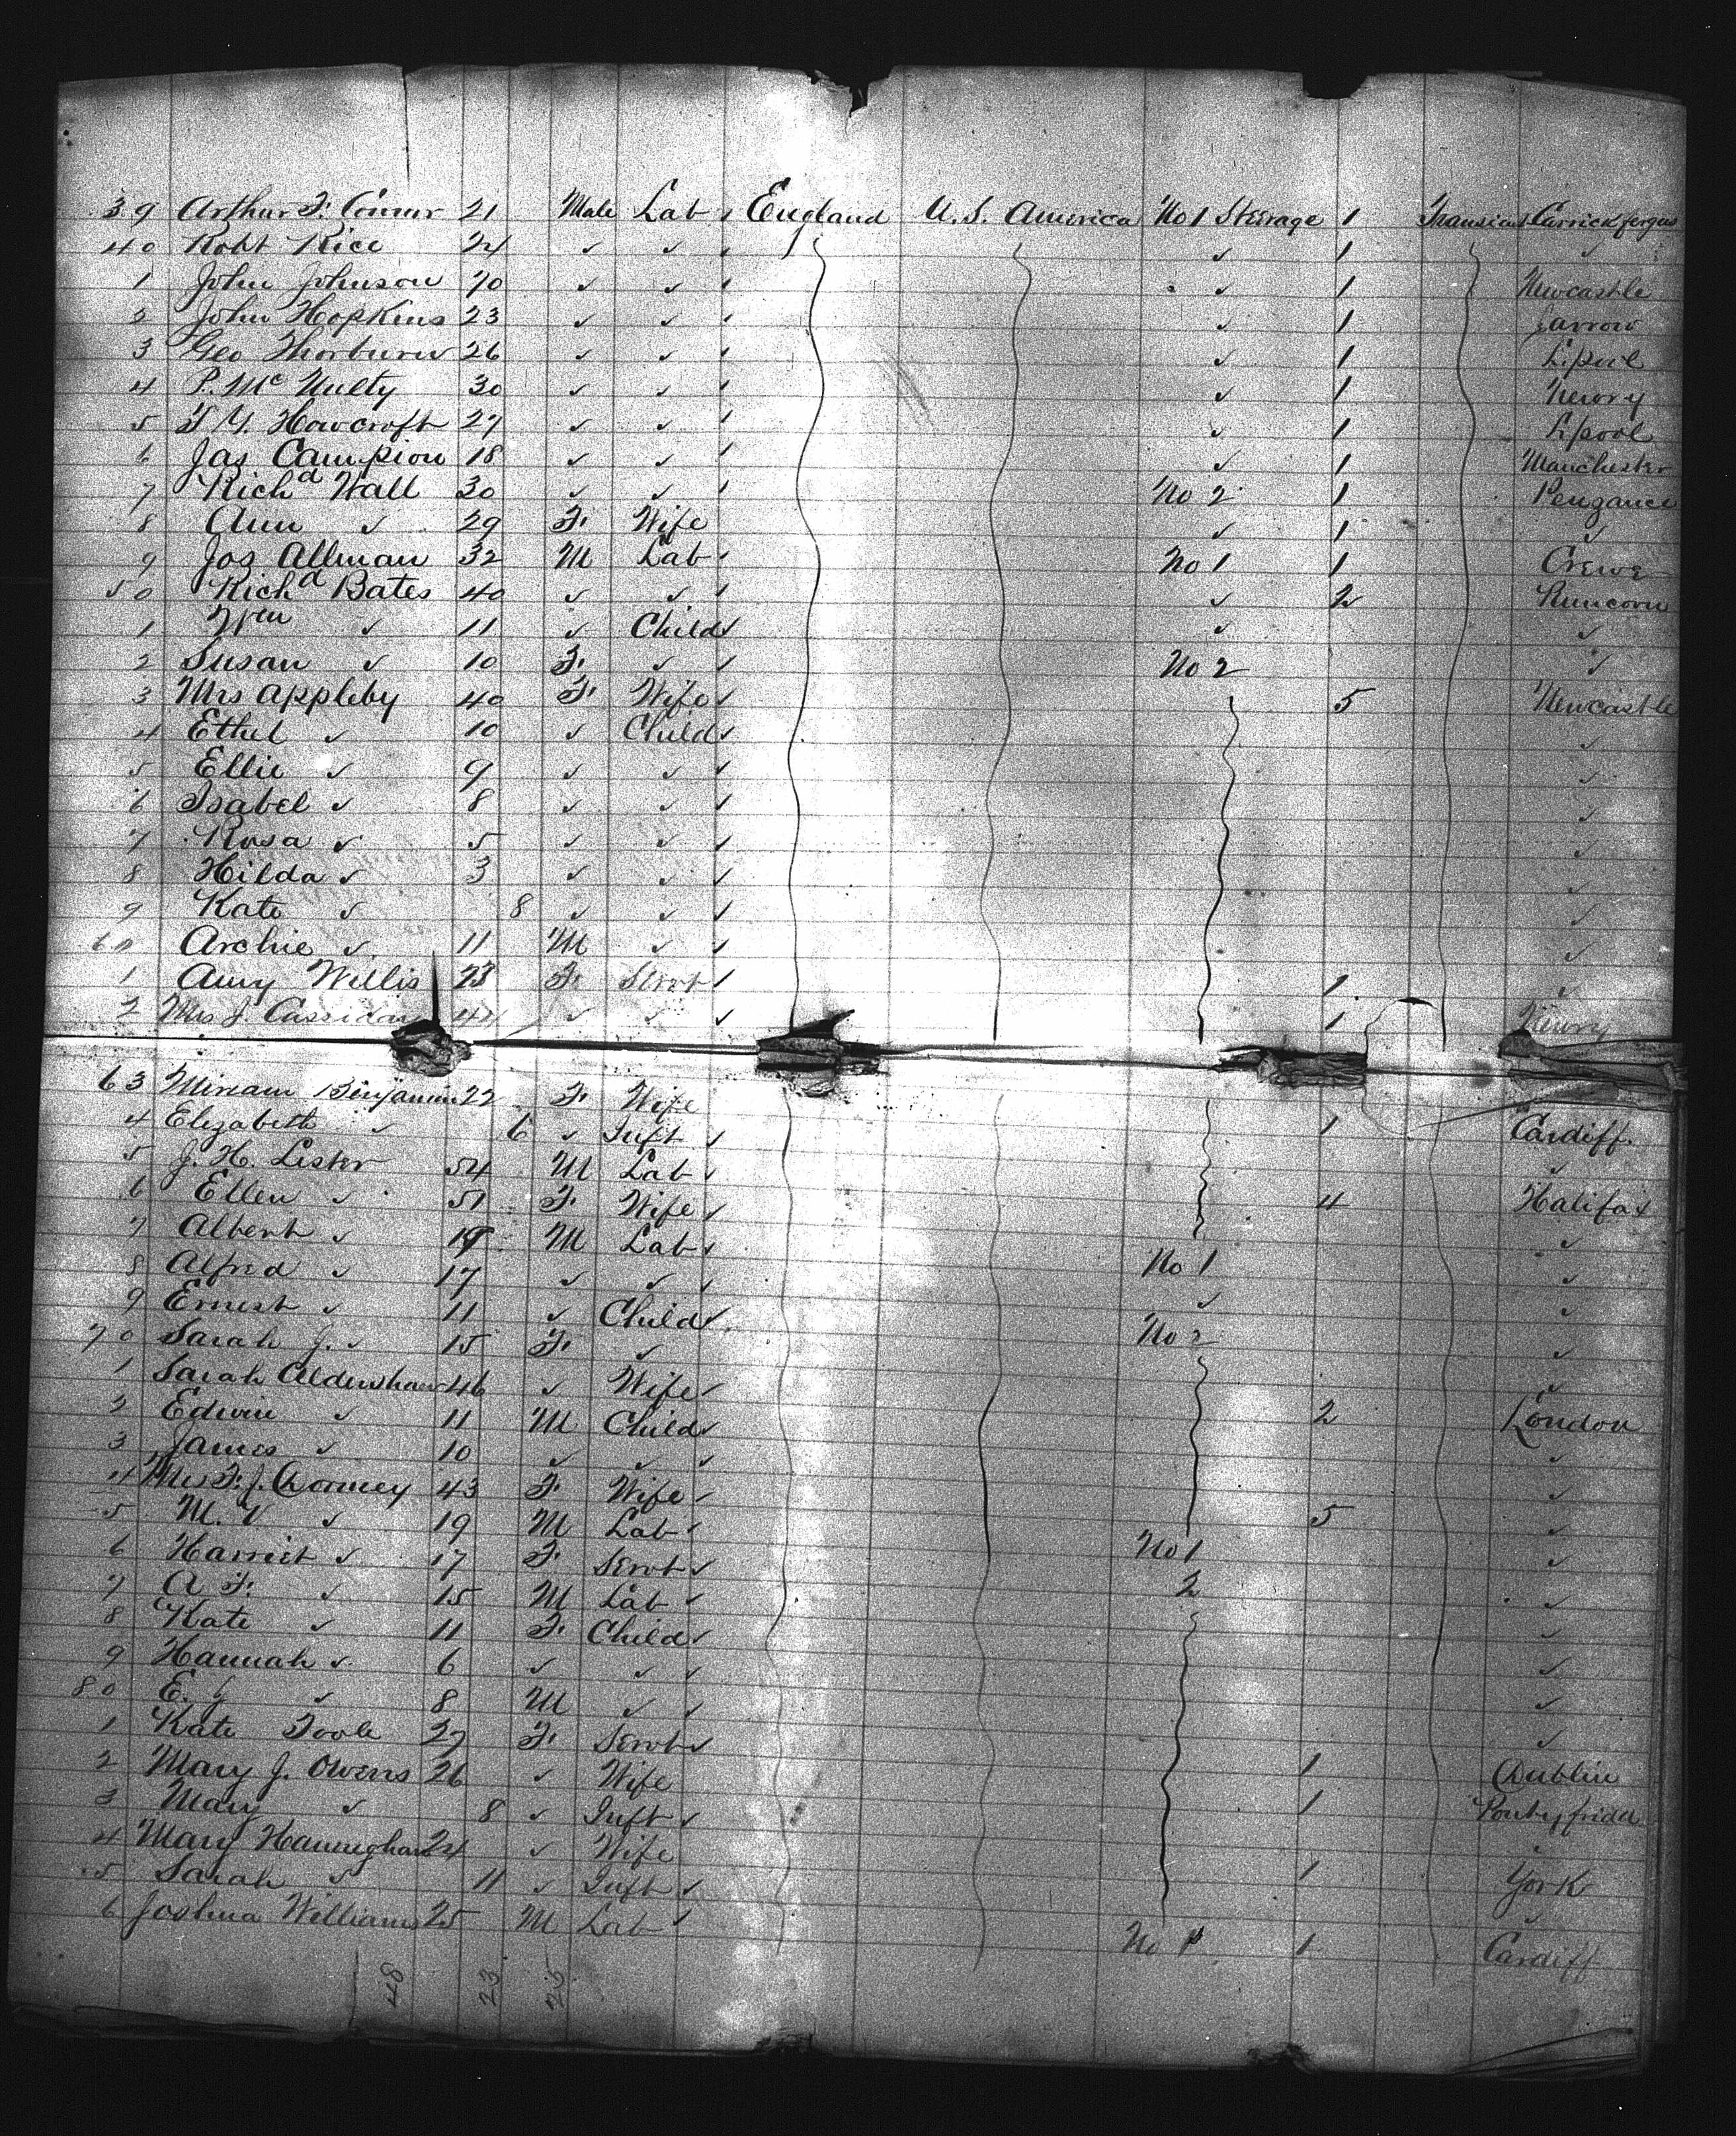 39 Arthur F. Connor 21 Male Lab ✓ England U.S. America No 1 Steerage 1 Transient Carrickfergus
40 Robt Rice 24 ✓ ✓ ✓ ✓ 1 ✓
1 John Johnson 20 ✓ ✓ ✓ ✓ 1 Newcastle
2 John Hopkins 23 ✓ ✓ ✓ ✓ 1 Jarrow
3 Geo Thorburn 26 ✓ ✓ ✓ ✓ 1 L.pool
4 P. McNulty 30 ✓ ✓ ✓ ✓ 1 Newry
5 T Y. Howcroft 27 ✓ ✓ ✓ ✓ 1 L.pool
6 Jas Campion 18 ✓ ✓ ✓ ✓ 1 Manchester
7 Richd Wall 30 ✓ ✓ ✓ No 2 1 Penzance
8 Ann ✓ 29 F. Wife ✓ 1 ✓
9 Jos Allman 32 M Lab ✓ No 1 1 Crewe
50 Richd Bates 40 ✓ ✓ ✓ ✓ 2 Runcorn
1 Wm ✓ 11 ✓ Child ✓ ✓ ✓
2 Susan ✓ 10 F. ✓ ✓ No 2 ✓
3 Mrs Appleby 40 F. Wife ✓ 5 Newcastle
4 Ethel ✓ 10 ✓ Child ✓ ✓
5 Ellie ✓ 9 ✓ ✓ ✓ ✓
6 Isabel ✓ 8 ✓ ✓ ✓ ✓
7 Rosa ✓ 5 ✓ ✓ ✓ ✓
8 Hilda ✓ 3 ✓ ✓ ✓ ✓
9 Kate ✓ 8 ✓ ✓ ✓ ✓
60 Archie ✓ 11 M ✓ ✓ ✓
1 Amy Willis 23 F. Servt ✓ 1 ✓
2 Mrs J. Cassiday ✓ ✓ ✓ 1 Newry
63 Miriam Benjamin 22 F. Wife
4 Elizabeth ✓ 6 ✓ Inft ✓ 1 Cardiff.
5 J. H. Lister 54 M Lab ✓ ✓
6 Ellen ✓ 51 F. Wife ✓ 4 Halifax
7 Albert ✓ 19 M Lab ✓ No 1 ✓
8 Alfred ✓ 17 ✓ ✓ ✓ ✓ ✓
9 Ernest ✓ 11 ✓ Child ✓ No 2 ✓
70 Sarah J. ✓ 15 F. ✓ ✓
1 Sarah Aldershaw 46 ✓ Wife ✓ ✓
2 Edwin ✓ 11 M Child ✓ 2 London
3 James ✓ 10 ✓ ✓ ✓ ✓
4 Mrs F. J. Dormey 43 F. Wife ✓ ✓
5 M. V ✓ 19 M Lab ✓ No 1 5 ✓
6 Harriet ✓ 17 F. Servt ✓ 2 ✓
7 A F. ✓ 15 M Lab ✓ ✓
8 Kate ✓ 11 F. Child ✓ ✓
9 Hannah ✓ 6 ✓ ✓ ✓ ✓
80 E. J ✓ 8 M ✓ ✓ ✓
1 Kate Toole 27 F. Servt ✓ ✓
2 Mary J. Owens 26 ✓ Wife 1 Dublin
3 Mary ✓ 8 ✓ Inft ✓ 1
4 Mary Hannigham 24 ✓ Wife ✓
5 Sarah ✓ 11 ✓ Inft ✓ 1 York
6 Joshua Williams 25 M Lab ✓ ✓
No 1 1 Cardiff
48 23 25